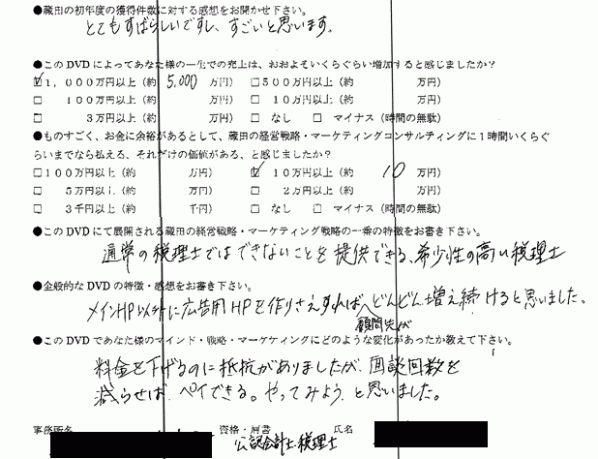 ●蔵田の初年度の獲得件数に対する感想をお聞かせ下さい。
とてもすばらしいですし、すごいと思います。
●このDVDによってあなた様の一生での売上は、おおよそいくらぐらい増加すると感じましたか?
☑1,000万円以上(約 5,000 万円) □500万円以上(約 万円)
□100万円以上(約 万円) □10万円以上(約 万円)
□3万円以上(約 万円) □なし □マイナス(時間の無駄)
●ものすごく、お金に余裕があるとして、蔵田の経営戦略・マーケティングコンサルティングに1時間いくらぐ
らいまでなら払える、それだけの価値がある、と感じましたか?
□100万円以上(約 万円) ☑10万円以上(約 10 万円)
□5万円以上(約 万円) □2万円以上(約 万円)
□3千円以上(約 千円) □なし □マイナス(時間の無駄)
●このDVDにて展開される蔵田の経営戦略・マーケティング戦略の一番の特徴をお書き下さい。
通常の税理士ではできないことを提供できる、希少性の高い税理士
●全般的なDVDの特徴・感想をお書き下さい。
メインHP以外に広告用HPを作りさえすれば、どんどん増え続けると思いました。
顧問先が
●このDVDであなた様のマインド・戦略・マーケティングにどのような変化があったか教えて下さい。
料金を下げるのに抵抗がありましたが、面談回数を
減らせば、ペイできる。やってみよう、と思いました。
事務所名 資格・肩書 氏名
公認会計士税理士